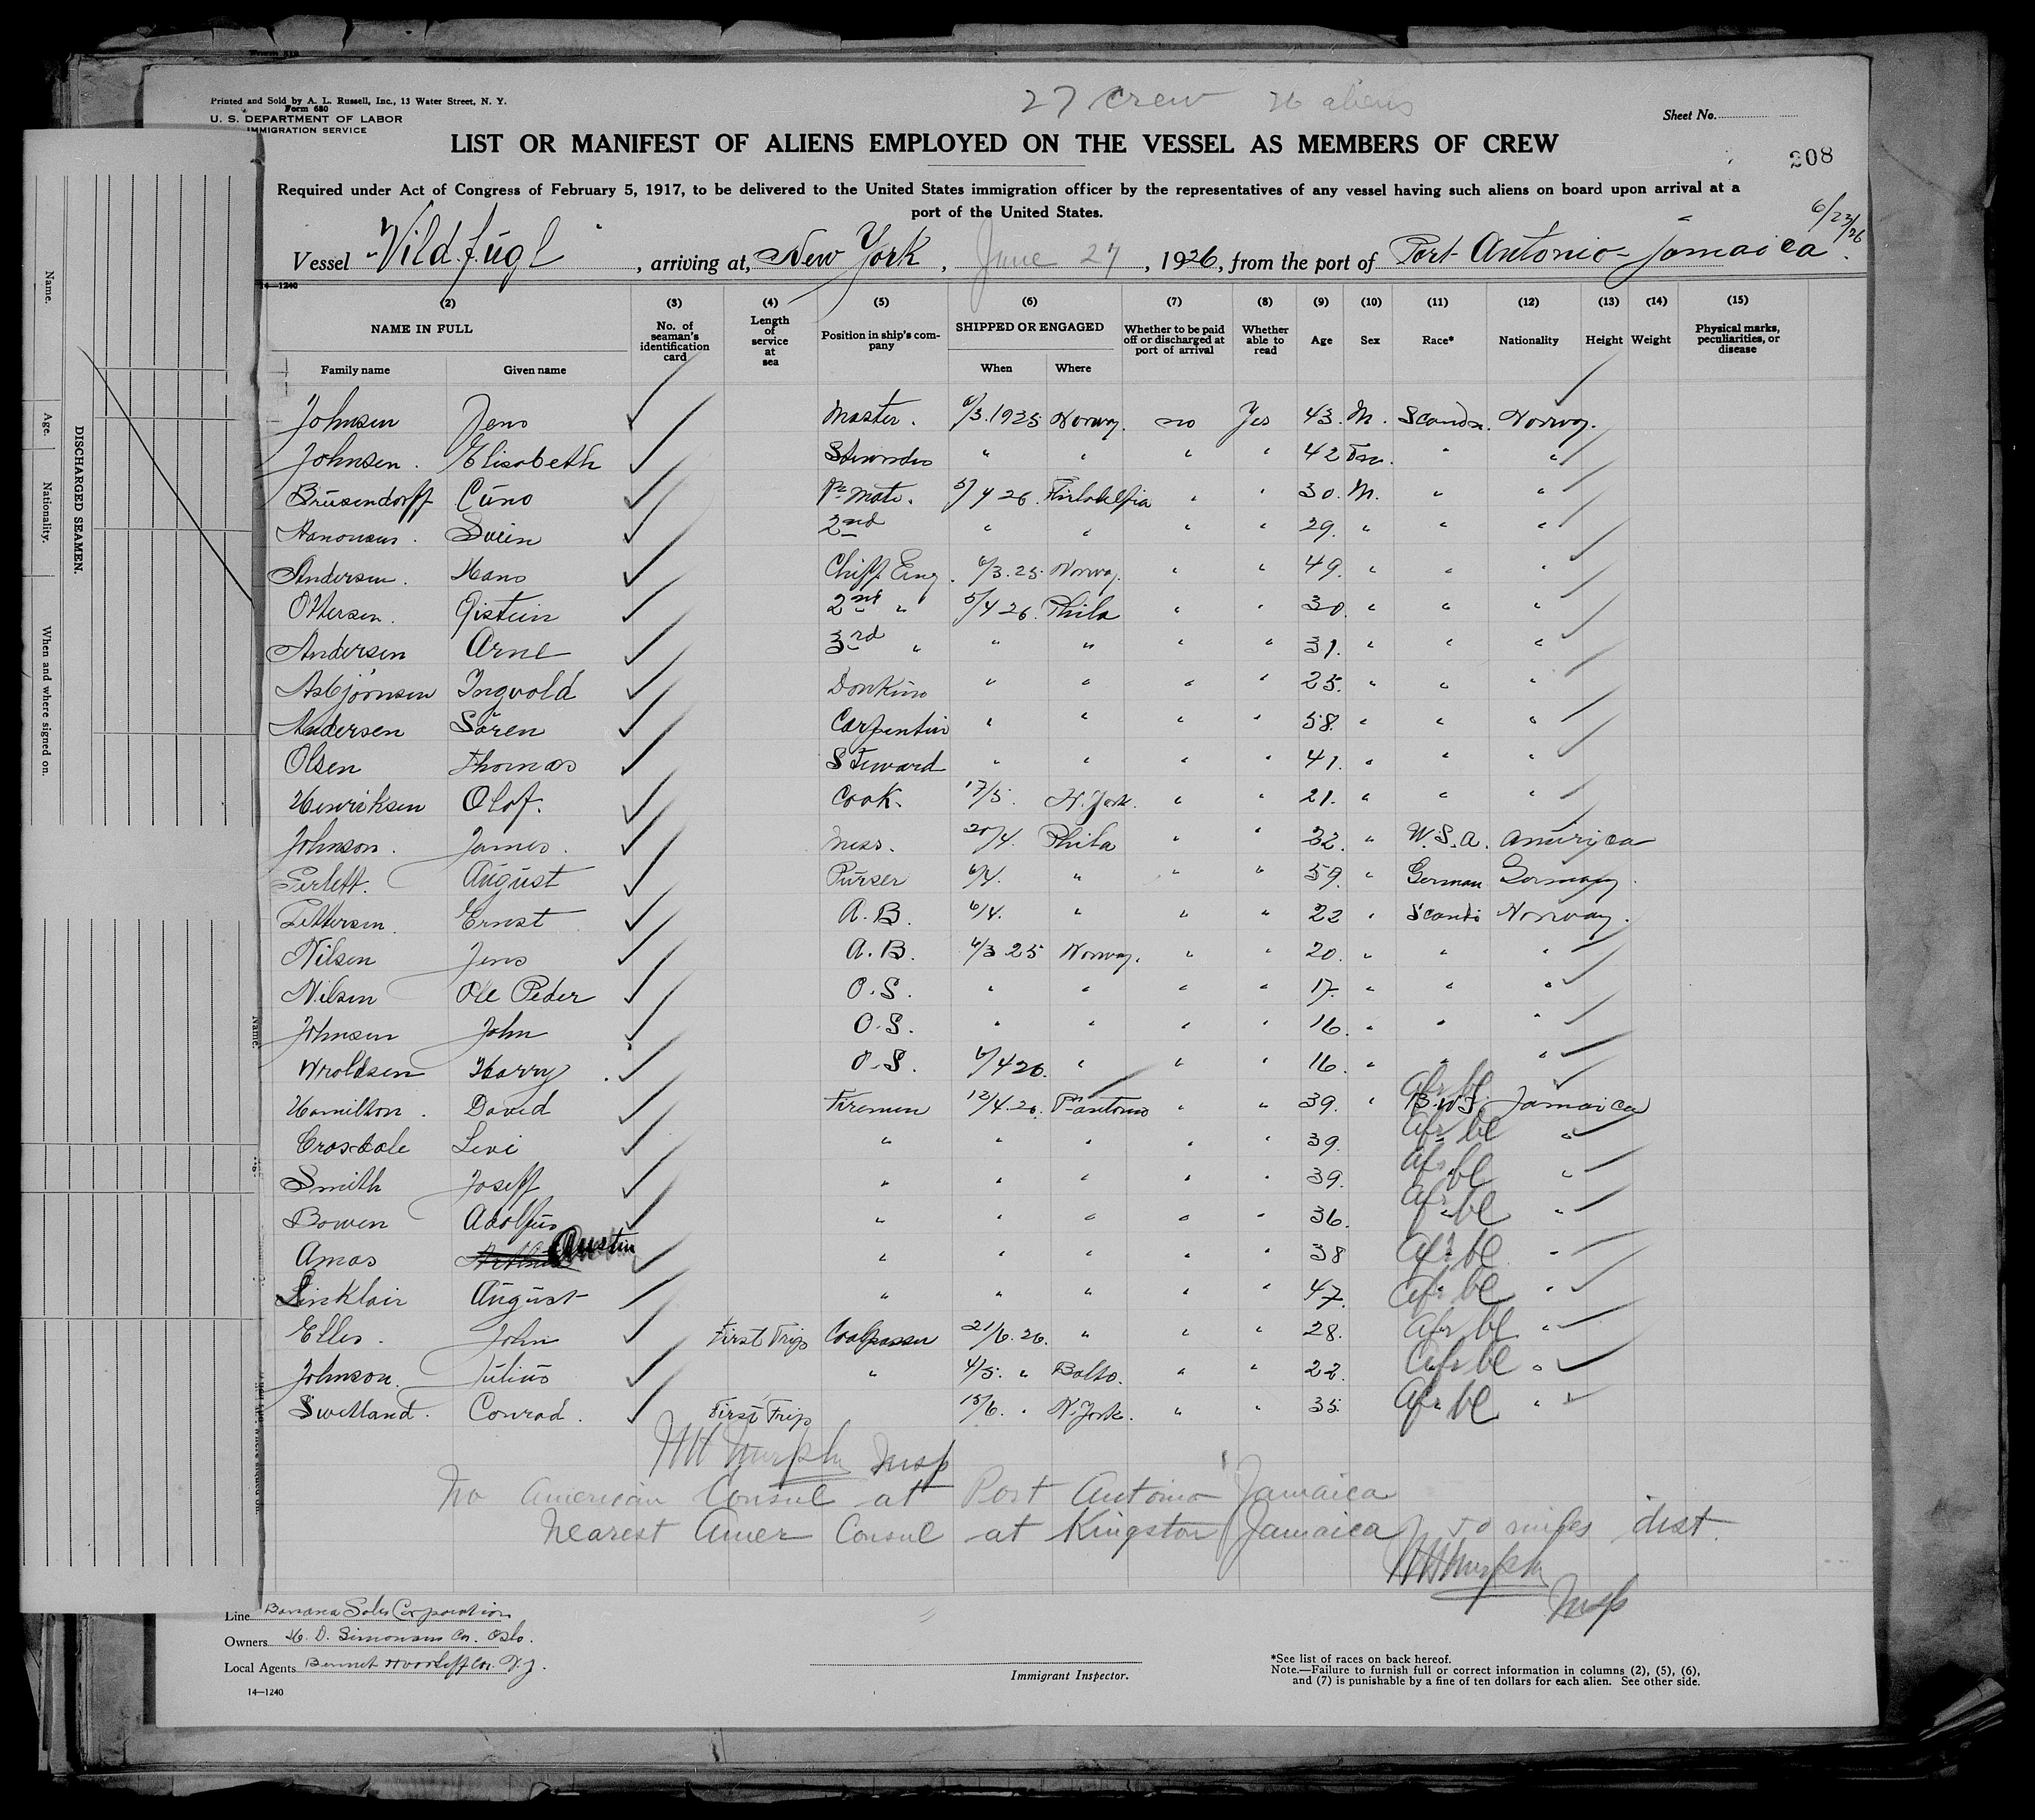 Form 519
Printed and Sold by A. L. Russell, Inc., 13 Water Street, N. Y.
Form 680
U. S. DEPARTMENT OF LABOR
IMMIGRATION SERVICE
27 crew 26 aliens
Sheet No.
208
LIST OR MANIFEST OF ALIENS EMPLOYED ON THE VESSEL AS MEMBERS OF CREW
Required under Act of Congress of February 5, 1917, to be delivered to the United States immigration officer by the representatives of any vessel having such aliens on board upon arrival at a
port of the United States.
6/23/26
Vessel "Vildfugl", arriving at, New York, June 27, 1926, from the port of Port Antonio - Jamaica.
14—1240
(2) (3) (4) (5) (6) (7) (8) (9) (10) (11) (12) (13) (14) (15)
NAME IN FULL No. of seaman's identification card Length of service at sea Position in ship's company SHIPPED OR ENGAGED Whether to be paid off or discharged at port of arrival Whether able to read Age Sex Race* Nationality Height Weight Physical marks, peculiarities, or disease
Family name Given name When Where
Johnsen Jens Master. 6/3.1925 Norway. no Yes 43. M. Scandn. Norway.
Johnsen. Elisabeth " " " " 42 " "
Brüsendorff Cüno Mate. 5/4 26. 30. M. " "
Svein 2nd " " " " 29. " " "
Andersen. Hans Chiff. Eng. 6/3.25. Norway. " " 49. " " "
Ottersen. Oistein 2nd " 5/4 26. Phila " " 30. " " "
Andersen Arne 3rd " " " " " 31. " " "
Asbjörnsen Ingvold " " " " 25. " " "
Andersen Sören Carpenter " " " " 58. " " "
Olsen Thomas Steward " " " " 41. " " "
Henriksen Olof. Cook. 17/5. N. York. " " 21. " " "
Johnson. James. Mess. 20/4. Phila " " 22. " U.S.A. America
August Pürser 6/4. " " " 59. " German Germany.
Ernst A.B. 6/4. " " " 22 " Scandi Norway.
Nilsen Jens A.B. 6/3 25 Norway. " " 20. " " "
Nilsen Ole Peder O.S. " " " " 17. " " "
Johnsen John O.S. " " " " 16. " " "
Wroldsen Harry O.S. " " " 16. " " "
Hamilton. David Firemen 12/4.26. P. Antonio " " 39. " Afr bl B.W.I. Jamaica
Crosdale Levi " " " " " 39. Afr bl "
Smith Joseff " " " " " 39. Afr bl "
Bowen Adolfüs " " " " " 36. Afr bl "
Amos Austin " " " " " 38 Afr bl "
Sinklair August " " " " " 47. Afr bl "
Elles. John First Trip Coalpasser 21/6.26. " " " 28. Afr bl "
Johnson. Jülius " 4/5. " Balto. " " 22. Afr bl "
Swetland. Conrad. First Trip 15/6. " N. York. " " 35. Afr bl "
Murphy Insp
No American Consul at Port Antonio Jamaica
Nearest Amer Consul at Kingston Jamaica 50 miles dist.
Murphy
Insp
Line Banana Sales Corporation
Owners H. D. Simonsens Co. Oslo.
Local Agents Co. N.Y.
14—1240
Immigrant Inspector.
*See list of races on back hereof.
Note.—Failure to furnish full or correct information in columns (2), (5), (6),
and (7) is punishable by a fine of ten dollars for each alien. See other side.
Name.
Age.
Nationality.
When and where signed on.
DISCHARGED SEAMEN.
Name.